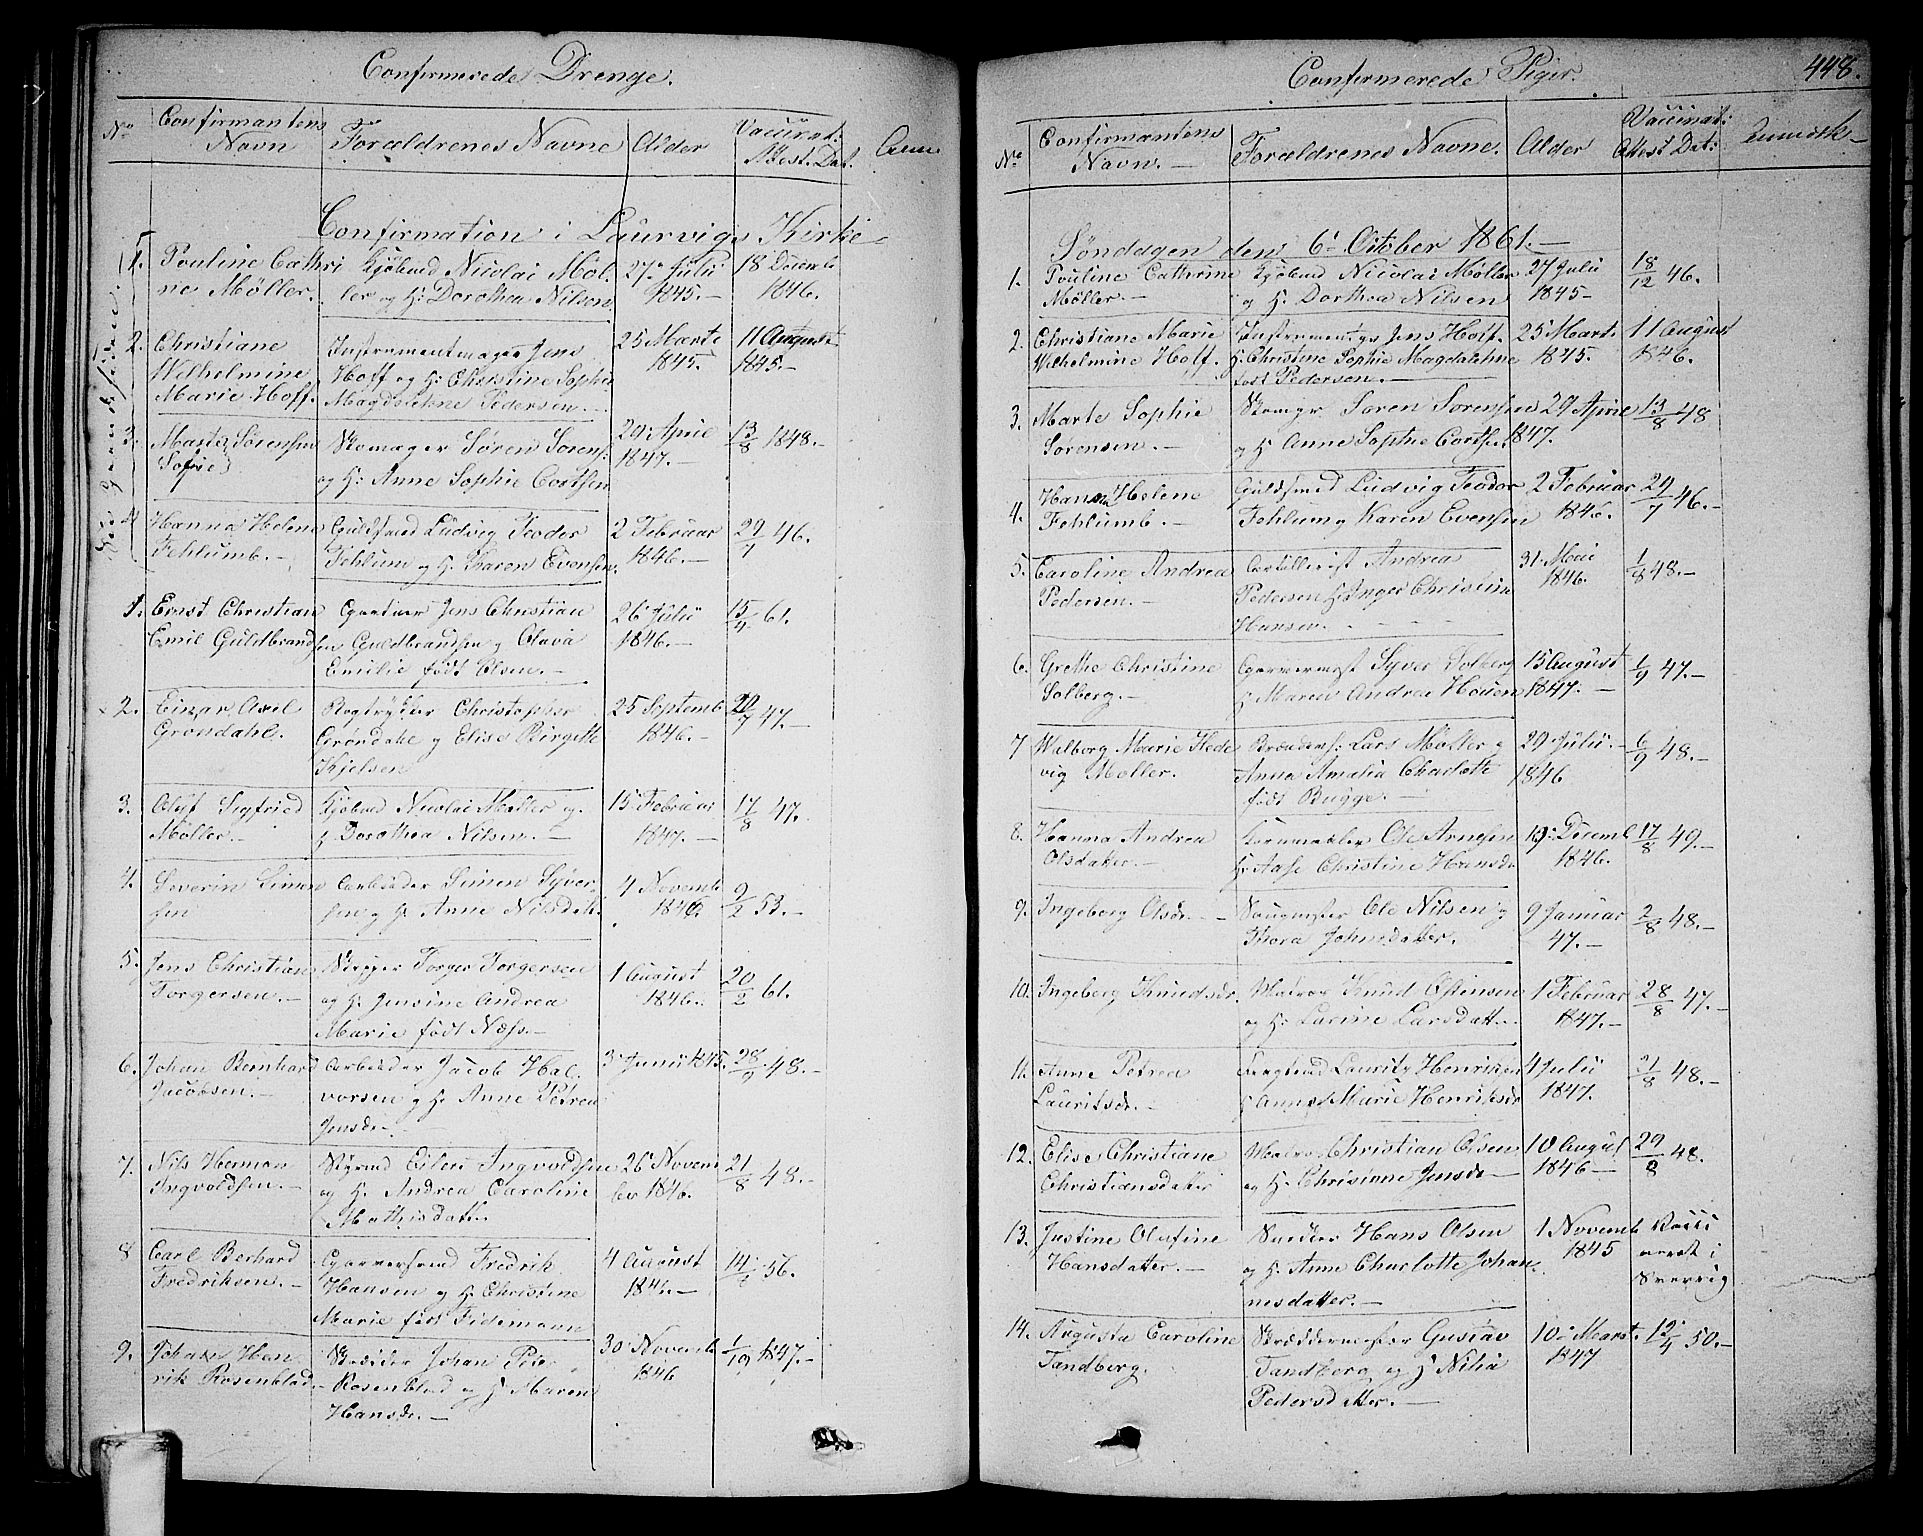 Confirmerede Drenge.
No
Confirmantens Navn
Forældrenes Navne
Alder
Vaccinat: Attest. Dat.
Anm
Confirmation i Laurvigs Kirke
1. Pouline Cathri Kjøbmd Nicolai Møl- 27 Julii 18 Decemb
ne Møller. ler og H: Dorothea Nilsen 1845.- 1846.
2. Christiane Instrumentmager Jens 25 Marts 11 August
Wilhelmine Hoff og H: Christine Sophie 1845. 1845.-
Marie Hoff. Magdalehne Pedersen.-
3. Marte Sørensen Skomager Søren Sørens: 29 April 13/8 1848.-
Sofie og H: Anne Sophie Cortsen 1847.-
4 Hanna Helene Guldsmed Ludvig Teodor 2 Februar 29/7 46.
Fehlumb.- Fehlum og H: Karen Evensen. 1846.-
1. Ernst Christian Gjartner Jens Christian 26 Julii 15/4 61.
Emil Guldbrandsen Guldbrandsen og Olava 1846.-
Emilie født Olsen.-
2. Einar Axel Bogtrykker Christopher 25 Septemb 20/7 47.-
Grøndahl. Grøndahl og Elise Birgitte 1846.-
Kjelsen
3. Oluf Sigfried Kjøbmd Nicolai Møller og 15 Februar 17/8 47.
Møller.- H: Dorothea Nilsen.- 1847.-
4. Severin Simen Arbeider Simen Syver- 4 Novemb 9/2 53.-
sen sen og H: Anne Nilsdtr. 1846
5. Jens Christian Skipper Torger Torgersen 1 August 20/2 61.
Torgersen.- og H: Jensine Andrea 1846.
Marie født Næss.-
6. Johan Bernhard Arbeider Jacob Hal- 3 Junii 1845. 28/9 48.-
Jacobsen.- vorsen og H: Anne Petrea
Jensdr.-
7. Nils Herman Styrmd Eilert Ingvoldsen 26 Novem 21/8 48.-
Ingvoldsen.- og H: Andrea Caroline ber 1846.
Mathisdatter.
8 Carl Berhard Garversvend Fredrik 4 August 14/ 56.
Fredriksen.- Hansen og H: Christine 1846.-
Marie født Tidemann
9. Johan Hen Skræder Johan Peter 30 Novemb 1/10 1847.-
rik Rosenblad.- Rosenblad og H: Maren 1846
Hansdr.-
Confirmerede Piger.
448.
No
Confirmantens Navn.-
Forældrenes Navne.
Alder
Vaccinat: Attest Dat:
Anmærk-
Søndagen den 6 October 1861.-
1. Pouline Cathrine Kjøbmd Nicolai Møller 27 Julii 18/12 46.
Møller.- og H: Dorthea Nilsen 1845-
2. Christiane Marie Instrumentmgr Jens Hoff. 25 Marts 11 August
Wilhelmine Hoff. H: Christine Sophie Magdalehne 1845. 1846.
født Pedersen.-
3. Marte Sophie Skomgr Søren Sørensen 29 April 13/8 48
Sørensen. og H: Anne Sophie Corts. 1847.
4. Hanna Helene Guldsmed Ludvig Teodor 2 Februar 29/7 46.-
Fehlumb.- Fehlum og Karen Evensen 1846.
5. Caroline Andrea Artillerist Andrea 31 Mai 1/8 48.-
Pedersen.- Pedersen H: Inger Christine 1846.
Hansen.
6. Grethe Christine Garvermest Syver Solberg 15 August 1/9 47.-
Solberg.- H: Maren Andrea Houen 1847.-
7 Walborg Marie Hede Brændev: Lars Møller og 29 Julii.- 6/9 48.-
vig Møller. Anna Amalia Charlotte 1846
født Bugge.-
8. Hanna Andrea Kornmaaler Ole Arnesen 19 Decemb 17/8 49.-
Olsdatter.- H: Aase Christine Hansdr 1846.
9. Ingeborg Olsdr.- Saugmester Ole Nilsen og 9 Januar 2/8 48.-
Thora Johnsdatter. 47.-
10. Ingeborg Knudsdr. Matros Knud Østensen 1 Februar 28/8 47.-
og H: Larine Larsdatter. 1847.-
11. Anne Petrea Fragtmd Lauritz Henriksen 4 Julii 31/8 48.-
Lauritsdr.- H: Anne Marie Henriksdr 1847.
12. Elise Christiane Matros Christian Olsen 10 August 29/8 48.
Christiansdatter og H: Chrisiane Jensdr- 1846-
13. Justine Olufine Snedker Hans Olsen 1 Novemb Vacci
Hansdatter.- og H: Anne Charlotte Johan 1845 neret i
nesdatter.- Sverrig
14. Augusta Caroline Skræddermester Gustav 10 Marst. 12/4 50.-
Tandberg. Tandberg og H: Nilia 1847
Pedersdatter.-